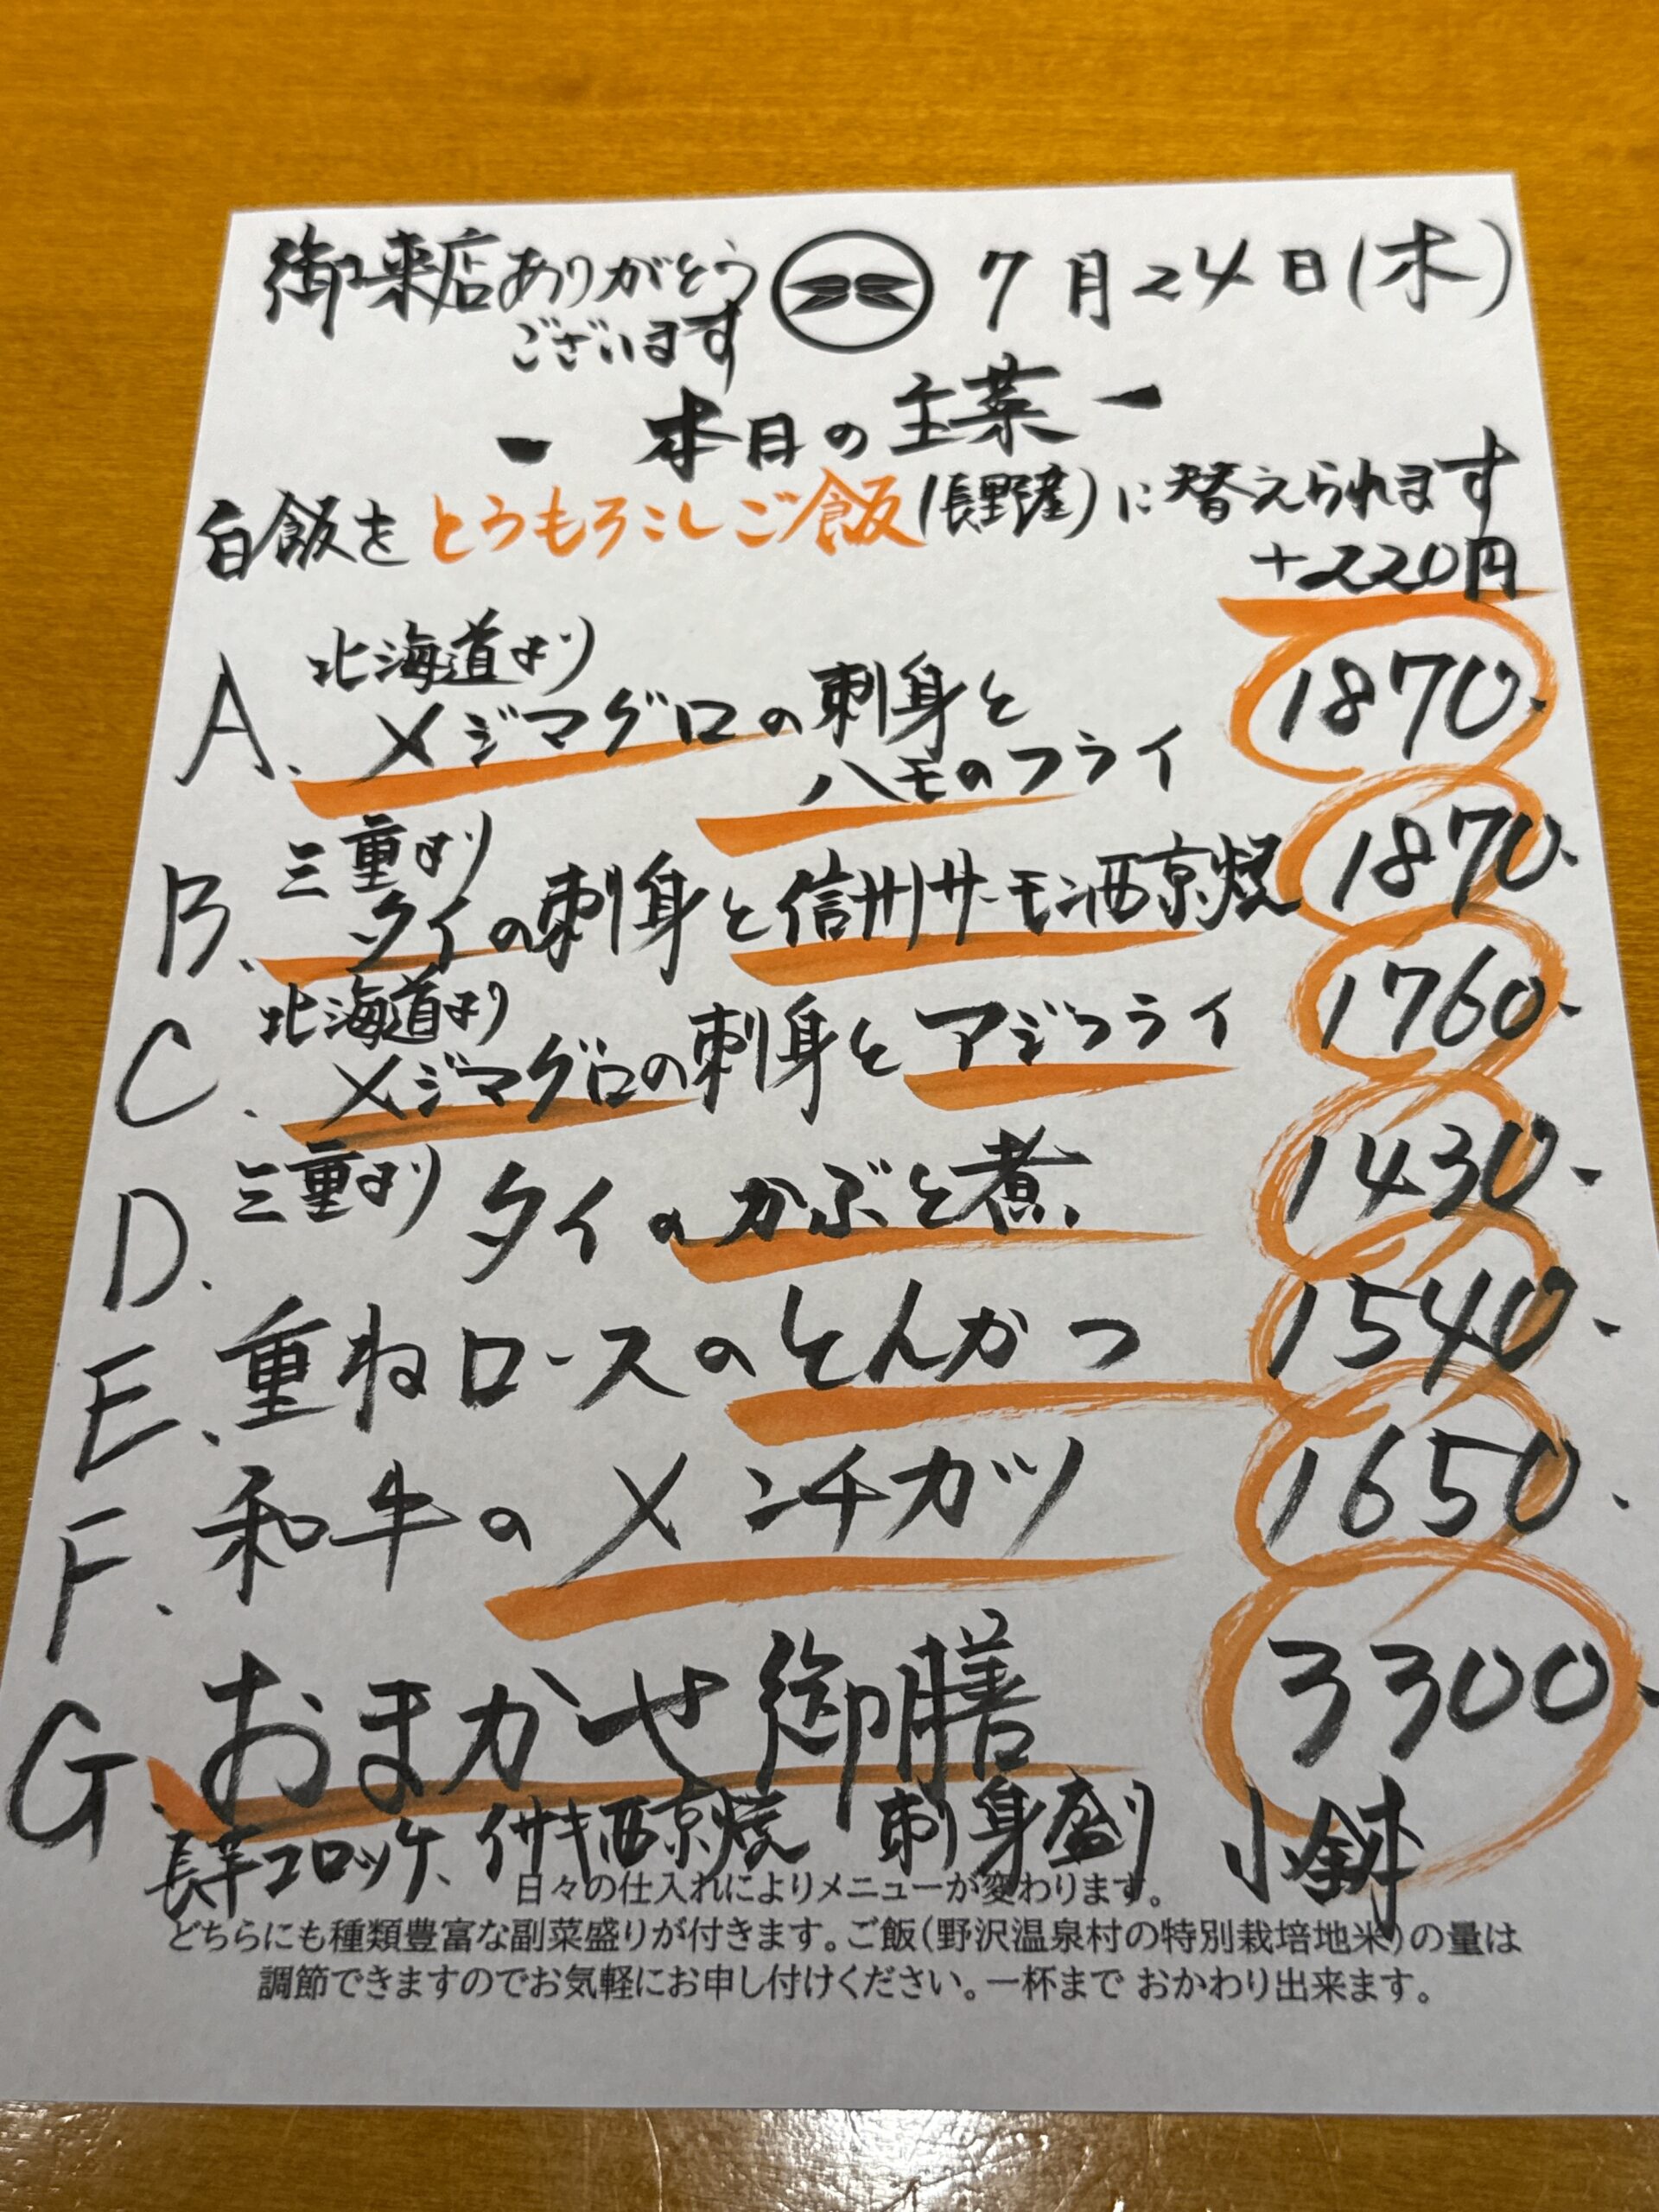 御来店ありがとう
ございます
7月24日(木)
- 本日の主菜 -
白飯をとうもろこしご飯(長野産)に替えられます
+220円
A. 北海道より
メジマグロの刺身と
ハモのフライ 1870.
B. 三重より
タイの刺身と信州サーモン西京焼 1870.
C. 北海道より
メジマグロの刺身とアジフライ 1760.
D. 三重より タイのかぶと煮 1430.
E. 重ねロースのとんかつ 1540.
F. 和牛のメンチカツ 1650.
G. おまかせ御膳 3300.
長芋コロッケ、イサキ西京焼 刺身盛り 小鉢
日々の仕入れによりメニューが変わります。
どちらにも種類豊富な副菜盛りが付きます。ご飯(野沢温泉村の特別栽培地米)の量は
調節できますのでお気軽にお申し付けください。一杯まで おかわり出来ます。